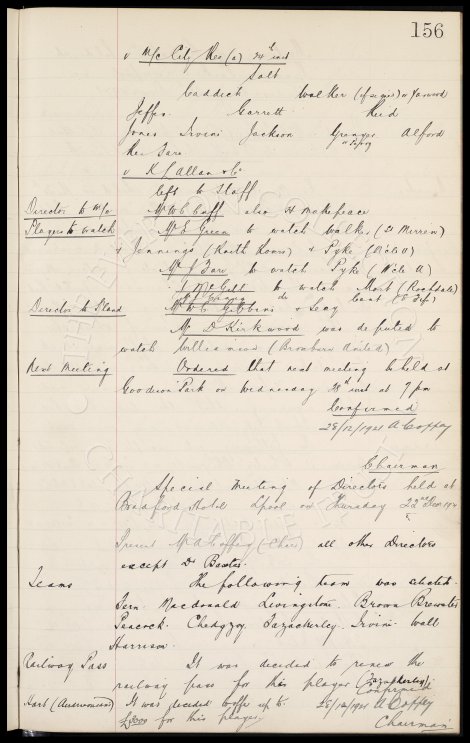 156
v M/c City Res (a) 24th inst
Salt
Caddick Walker (if signed) or Yarwood
Jeffs. Garrett Reid
Jones Irvine Jackson Grainger Alford
Res Fare
v K J Allan & Co
left to Staff
Director to M/c Mr W C Cuff also H Makepeace
Players to watch Mr E Green to watch Walker (St Mirren)
& Jennings (Raith Rovers) & Pyke (W'ole A)
Mr J Fare to watch Pyke (W'ole A)
to watch Mort (Rochdale)
do
Director to Stand Mr W C Gibbins & Leay
Mr D Kirkwood was deputed to
watch Williamson (Bromboro United)
Next Meeting Ordered that next meeting be held at
Goodison Park on Wednesday 28th inst at 7 pm
Confirmed
28/12/1921 A Coffey
Chairman
Special Meeting of Directors held at
Bradford Hotel Lpool on Thursday 22nd Dec 1921
Present Mr A Coffey (Chair) all other Directors
except Dr Baxter.
Teams The following team was selected.
Fern. Macdonald Livingstone. Brown Brewster
Peacock. Chedgzoy Fazackerley. Irvine. Wall
Harrison.
Railway Pass It was decided to renew the
railway pass for this player (Fazackerley)
Confirmed
Hart It was decided to offer up to 28/12/1921 A Coffey
for this player. Chairman